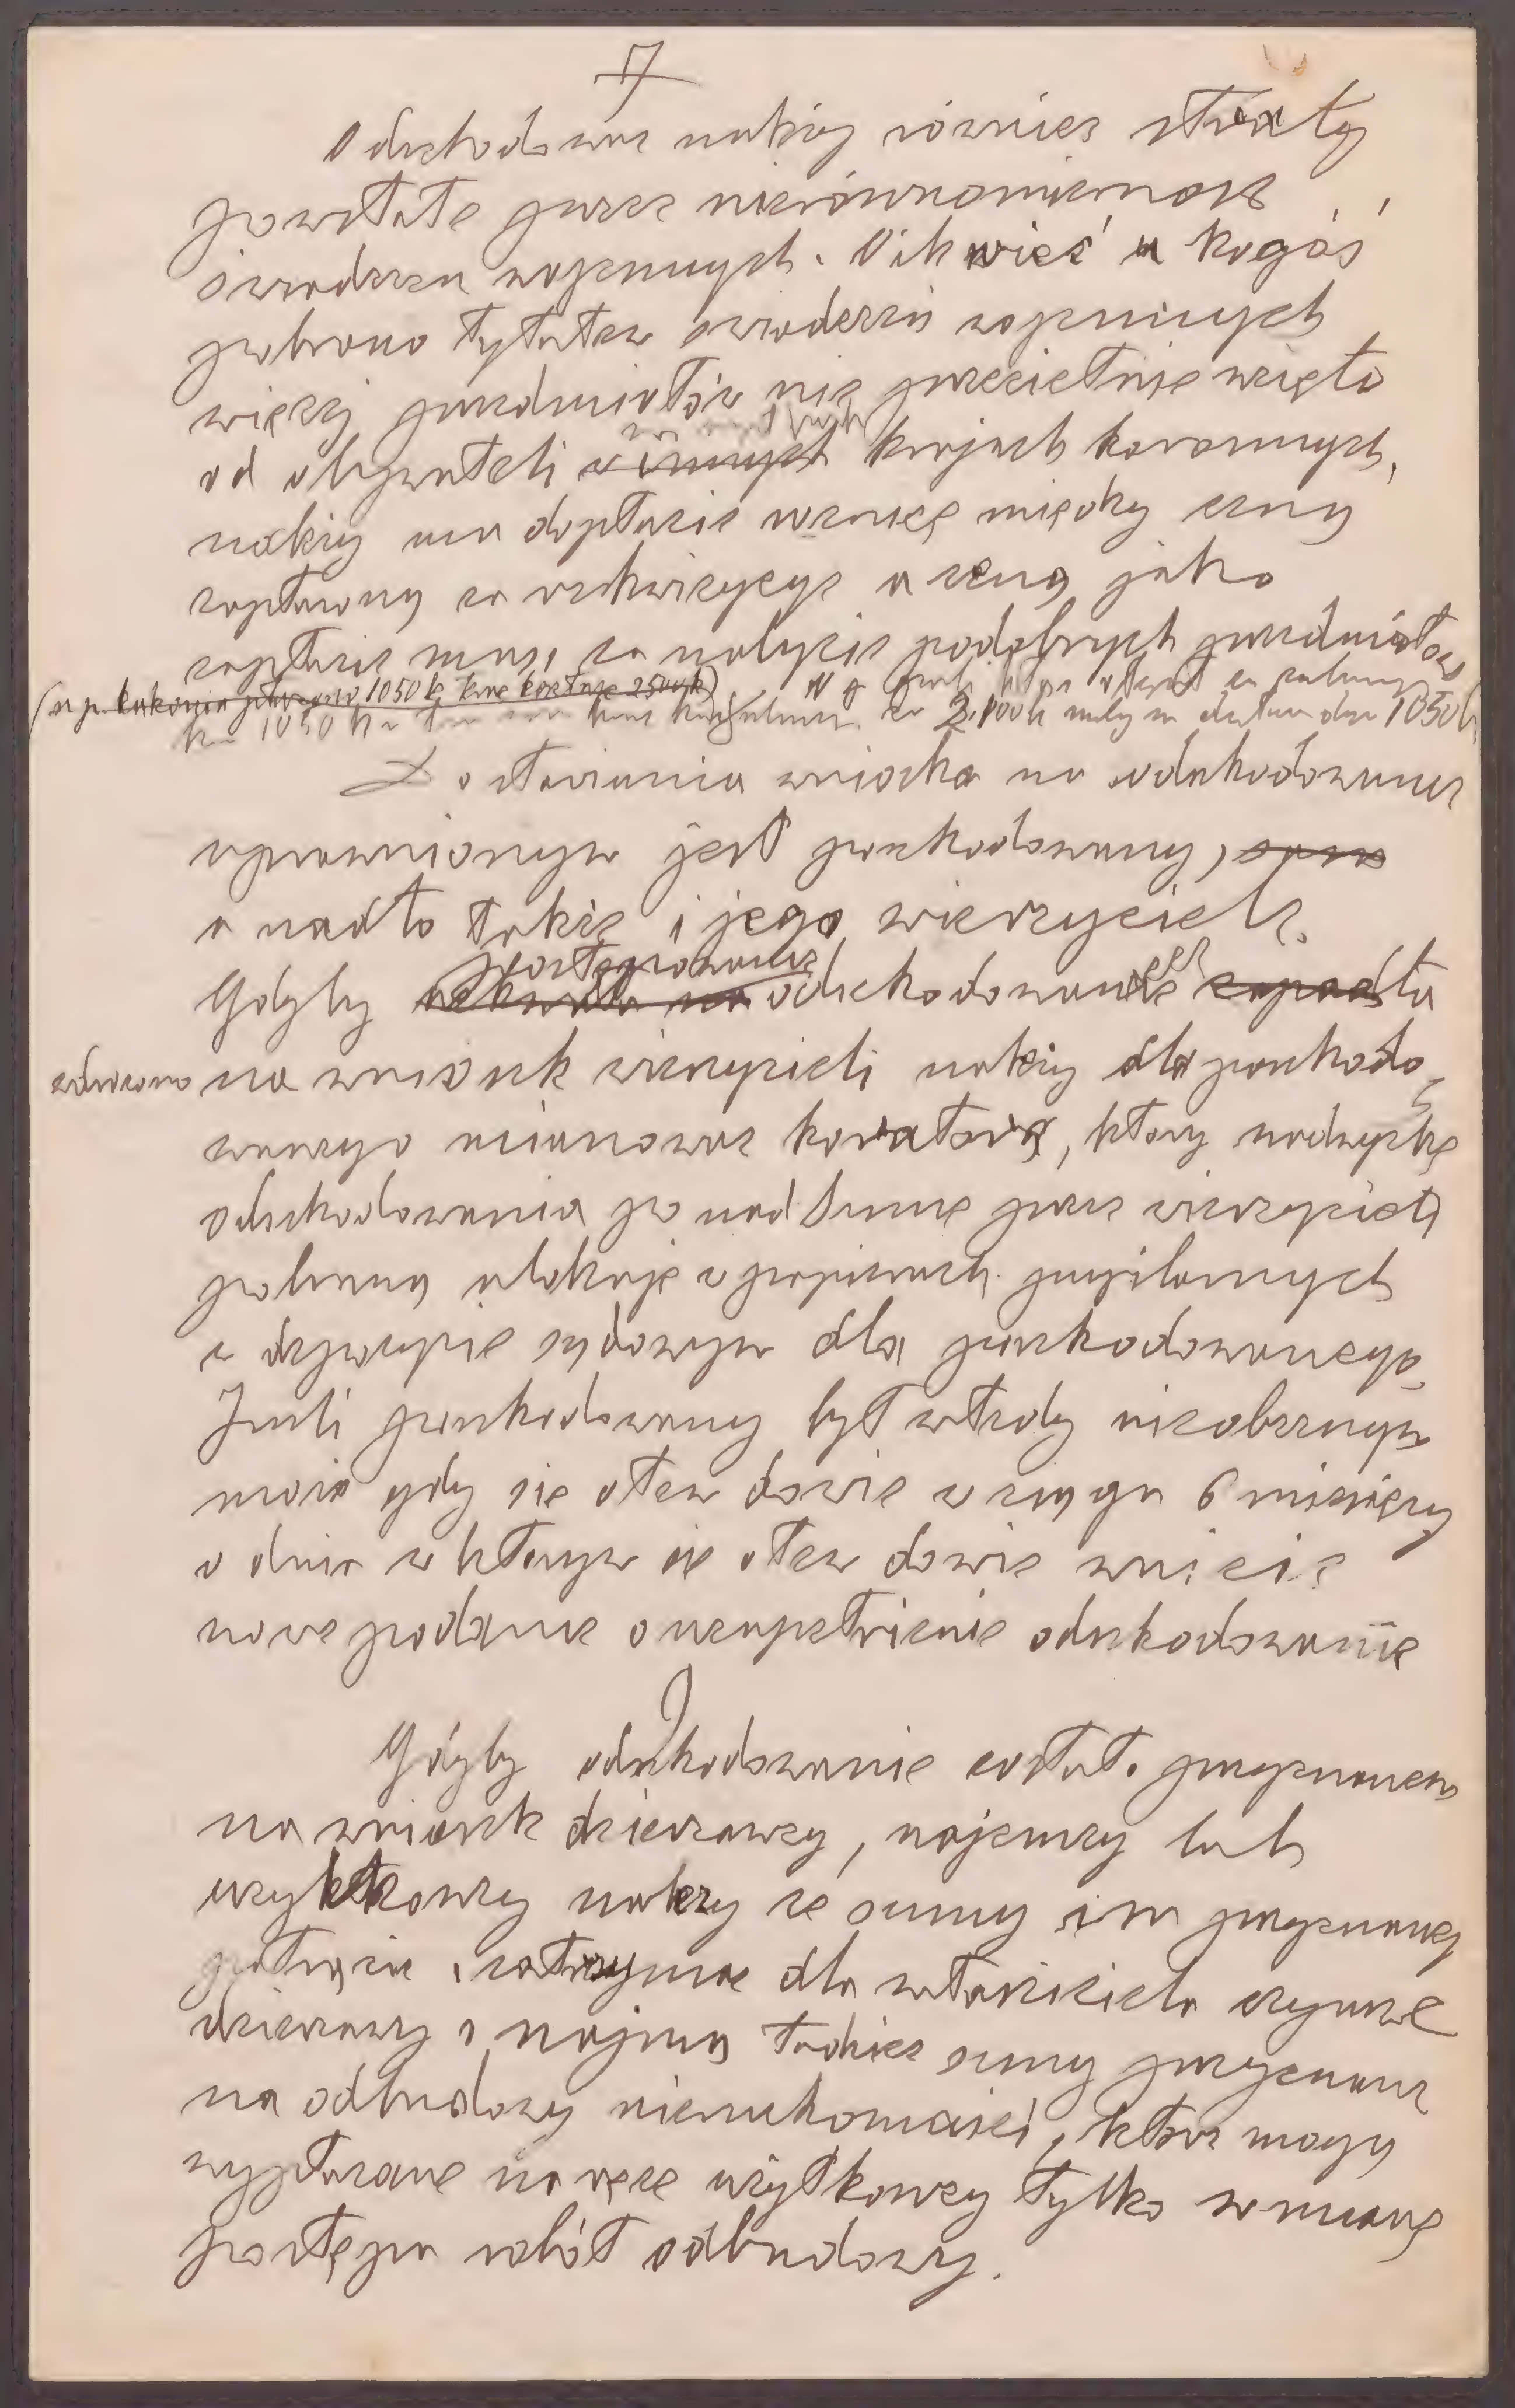 7
Odszkodować należy również straty
powstałe przez nierównomierność
świadczeń wojennych. O ile więc u kogoś
pobrano tytułem świadczeń wojennych
więcej przedmiotów niż przeciętnie wzięto
od obywateli w innych krajach koronnych,
należy mu dopłacić różnicę między ceną
zapłaconą za rekwizycyę a ceną jaką
zapłacić musi za nabycie podobnych przedmiotów
(n.p. 1050 k 2500 k) N p jeśli za
1050 k za 2.100 k należy mu 1050 k
Do stawiania wniosku na odszkodowanie
uprawnionym jest poszkodowany, sam
a nadto także i jego wierzyciele.
Gdyby postępowanie odszkodowawcze
wdrożono na wniosek wierzycieli należy dla poszkodo-
wanego mianować kuratora, który nadwyżkę
odszkodowania ponad sumę przez wierzycieli
pobraną ulokuje w papierach pupilarnych
w depozycie sądowym dla poszkodowanego.
Jeśli poszkodowany był wtedy nieobecnym
może gdy się o tem dowie w ciągu 6 miesięcy
o dnia w którym się o tem dowie wnieść
nowe podanie o uzupełnienie odszkodowania
Gdyby odszkodowanie zostało przyznanem
na wniosek dzierżawcy, najemcy lub
użytkowcy należy ze sumy im przyznanej
potrącić i zatrzymać dla właściciela czynsze
dzierżawy i najmu tudzież sumy przyznane
na odbudowę nieruchomości, które mogą
wypłacane na ręce użytkowcy tylko w miarę
postępu robót odbudowy.